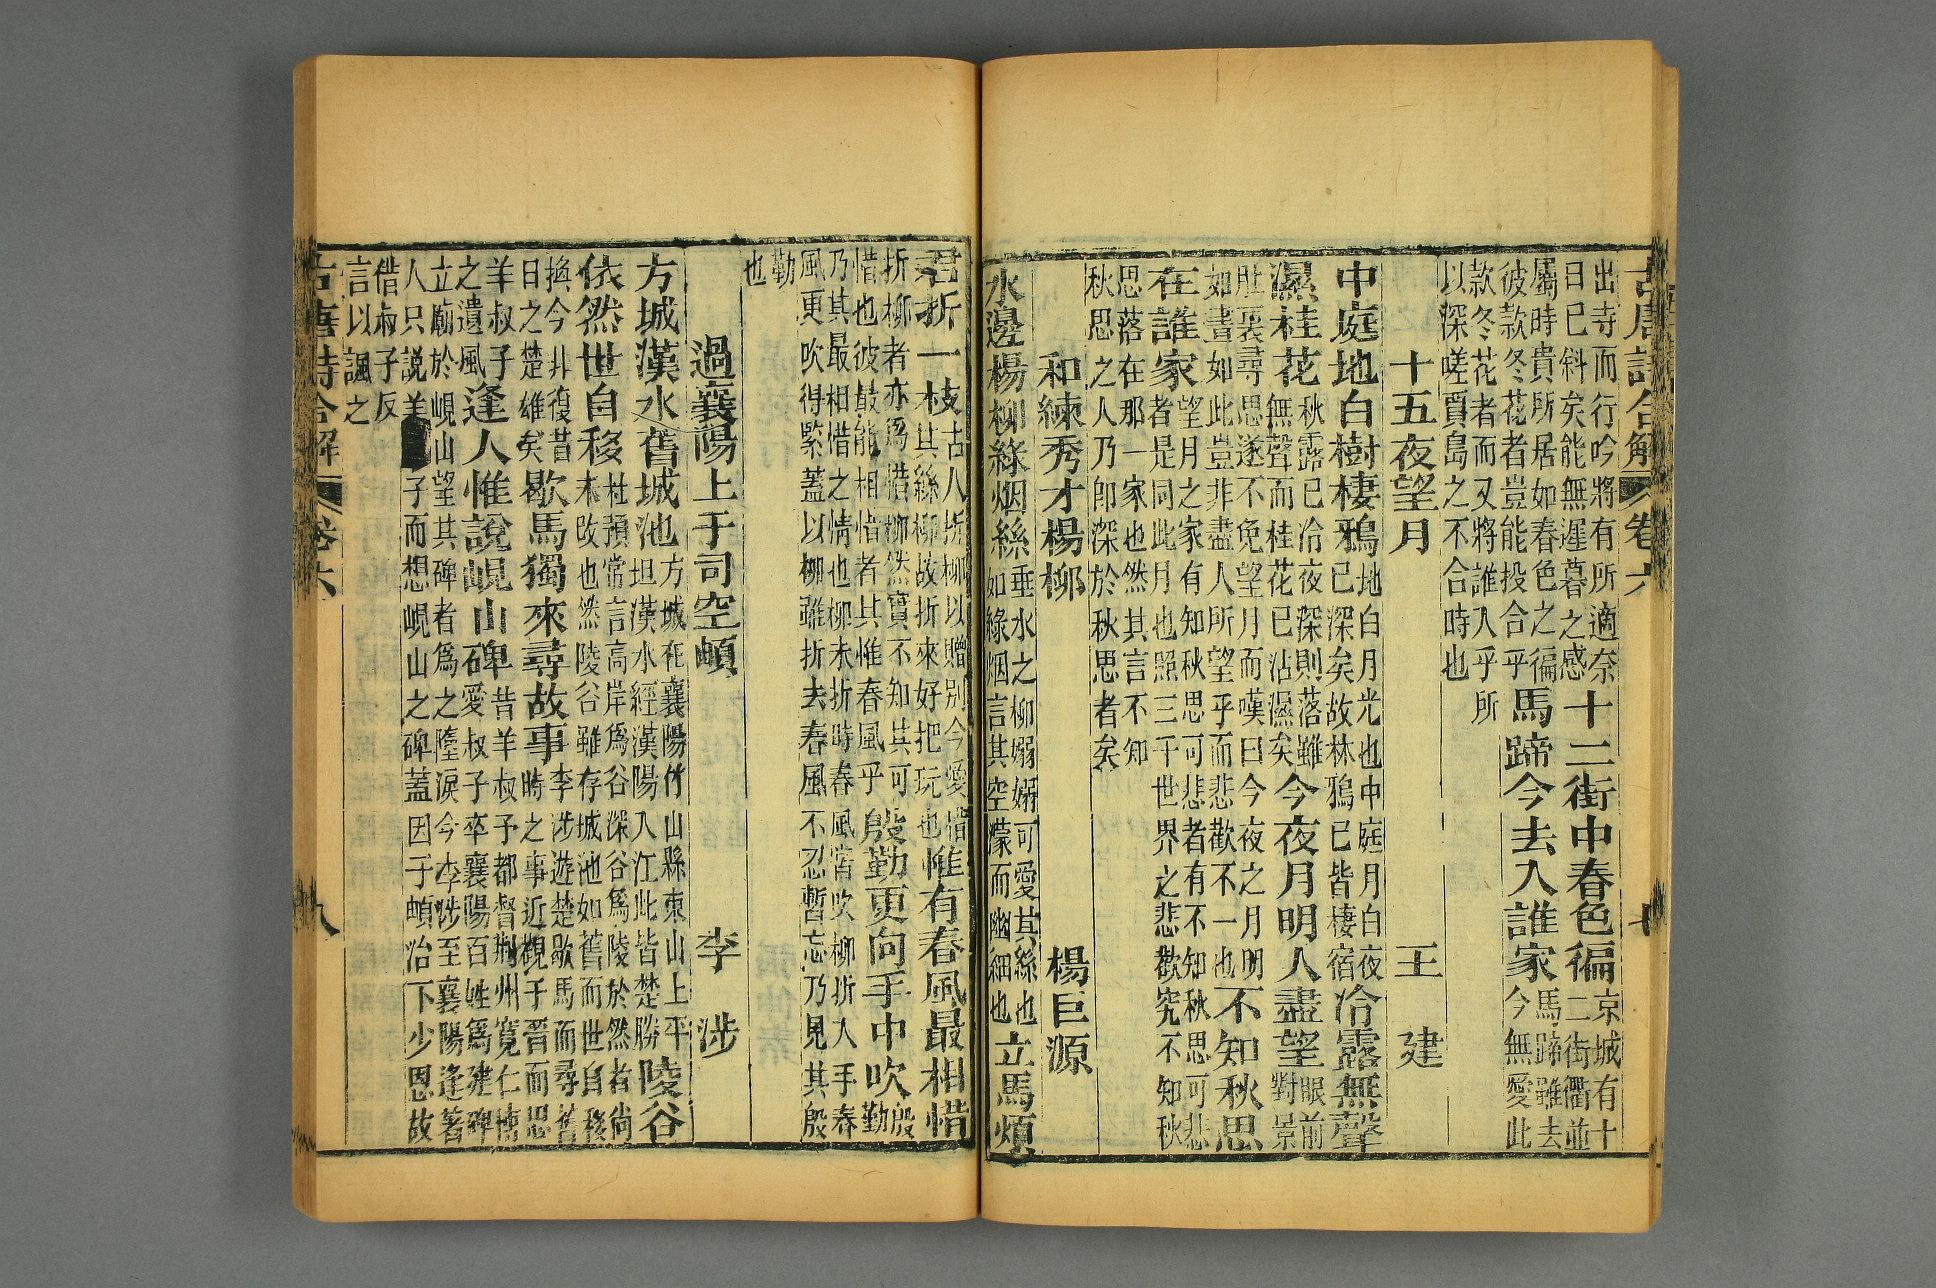 古唐詩合解 卷六 七
出寺而行吟將有所適奈
日已斜矣能無遲暮之感
十二街中春色徧
京城有十
二街衢並
屬時貴所居如春色之徧
彼款冬花者豈能投合乎
馬蹄今去入誰家
馬蹄雖去
今無愛此
款冬花者而又將誰入乎所
以深嗟賈島之不合時也
十五夜望月 王建
中庭地白樹棲鴉
地白月光也中庭月白夜
已深矣故林鴉已皆棲宿
冷露無聲
濕桂花
秋露已冷夜深則落雖
無聲而桂花已沾濕矣
今夜月明人盡望
眼前
對景
肚裏尋思遂不免望月而嘆曰今夜之月明
如晝如此豈非盡人所望乎而悲歡不一也
不知秋思
在誰家
望月之家有知秋思可悲者有不知秋思可悲
者是同此月也照三千世界之悲歡究不知秋
思落在那一家也然其言不知
秋思之人乃卽深於秋思者矣
和練秀才楊柳 楊巨源
水邊楊柳綠烟絲
垂水之柳嫋嫋可愛其絲也
如綠烟言其空濛而幽細也
立馬煩
君折一枝
古人折柳以贈別今愛惜
其絲柳故折來好把玩也
惟有春風最相惜
折柳者亦爲惜柳然實不知其可
惜也彼最能相惜者其惟春風乎
殷勤更向手中吹
殷
勤
乃其最相惜之情也柳未折時春風嘗吹柳折人手春
風更吹得緊蓋以柳雖折去春風不忍暫忘乃見其殷
勤
也
過襄陽上于司空頔 李涉
方城漢水舊城池
方城在襄陽竹山縣東山上平
坦漢水經漢陽入江此皆楚勝
陵谷
依然世自移
杜預常言高岸爲谷深谷爲陵於然者尚
未改也然陵谷雖存城池如舊而世自移
換今非復昔
日之楚雄矣
歇馬獨來尋故事
李涉遊楚歇馬而尋舊
時之事近觀于晉而思
羊叔子
之遺風
逢人惟說峴山碑
昔羊叔子都督荆州寬仁博
愛叔子卒襄陽百姓爲建碑
立廟於峴山望其碑者爲之墮淚今李涉至襄陽逢著
人只說羊子而想峴山之碑蓋因于頔治下少恩故
借叔子反
言以諷之
古唐詩合解 卷六 八